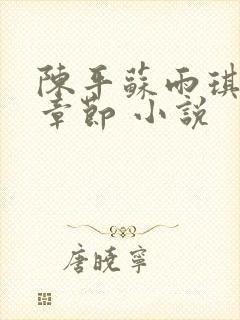 陳平蘇雨琪
章節 小說
唐曉寧